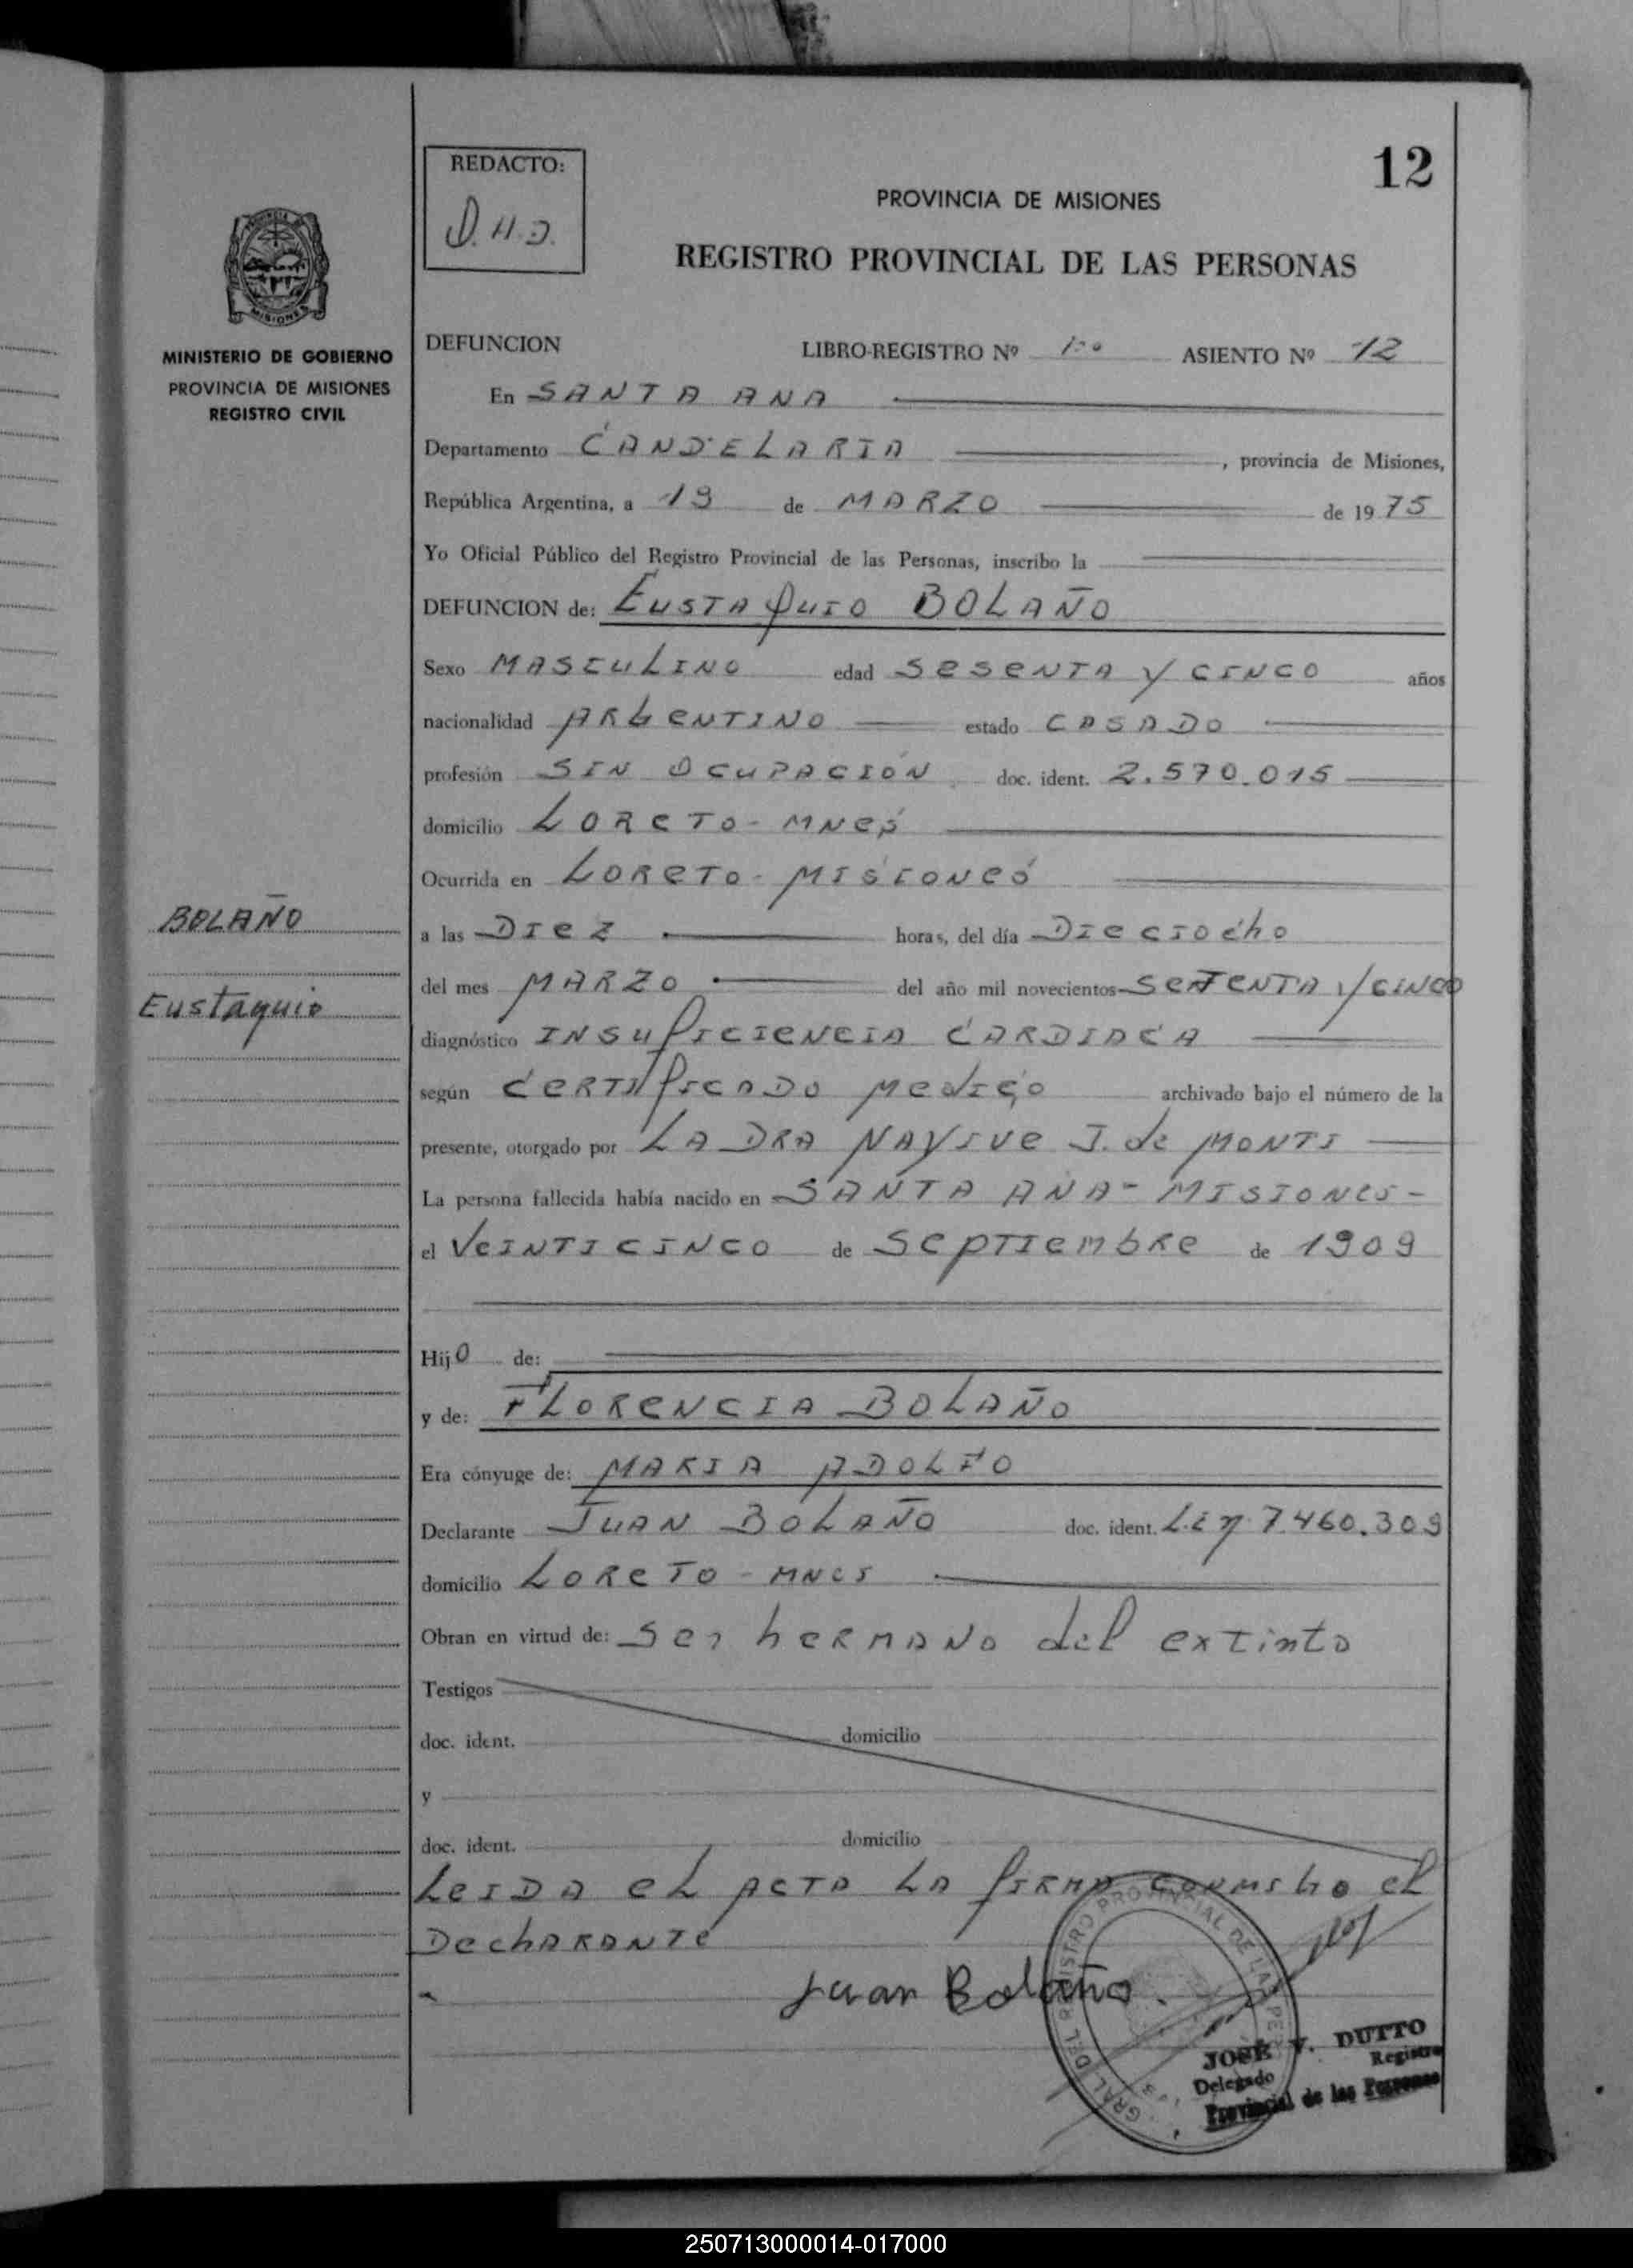 12
REDACTO:
D.H.D.
PROVINCIA DE MISIONES
REGISTRO PROVINCIAL DE LAS PERSONAS
MISIONES
MINISTERIO DE GOBIERNO
PROVINCIA DE MISIONES
REGISTRO CIVIL
DEFUNCION LIBRO-REGISTRO Nº 1:º ASIENTO Nº 12
En SANTA ANA
Departamento CANDELARIA , provincia de Misiones,
República Argentina, a 19 de MARZO de 1975
Yo Oficial Público del Registro Provincial de las Personas, inscribo la
DEFUNCION de: EUSTAQUIO BOLAÑO
Sexo MASCULINO edad SESENTA Y CINCO años
nacionalidad ARGENTINO estado CASADO
profesión SIN OCUPACIÓN doc. ident. 2.570.015
domicilio LORETO - MNES
Ocurrida en LORETO - MISIONES
BOLAÑO
a las DIEZ horas, del día DIECIOCHO
Eustaquio
del mes MARZO del año mil novecientos SETENTA Y CINCO
diagnóstico INSUFICIENCIA CARDIACA
según CERTIFICADO MEDICO archivado bajo el número de la
presente, otorgado por LA DRA NAYIVE J. de MONTI
La persona fallecida había nacido en SANTA ANA - MISIONES -
el VEINTICINCO de SEPTIEMBRE de 1909
Hijo de:
y de: FLORENCIA BOLAÑO
Era cónyuge de: MARIA ADOLFO
Declarante JUAN BOLAÑO doc. ident. L.E 7.460.309
domicilio LORETO - MNES
Obran en virtud de: Ser hERMANO del extinto
Testigos
doc. ident. domicilio
y
doc. ident. domicilio
LEIDA EL ACTA LA FIRMA CONMIGO EL
DECLARANTE
Juan Bolaño.
JOSE V. DUTTO
Delegado Registro
Provincial de las Personas
250713000014-017000